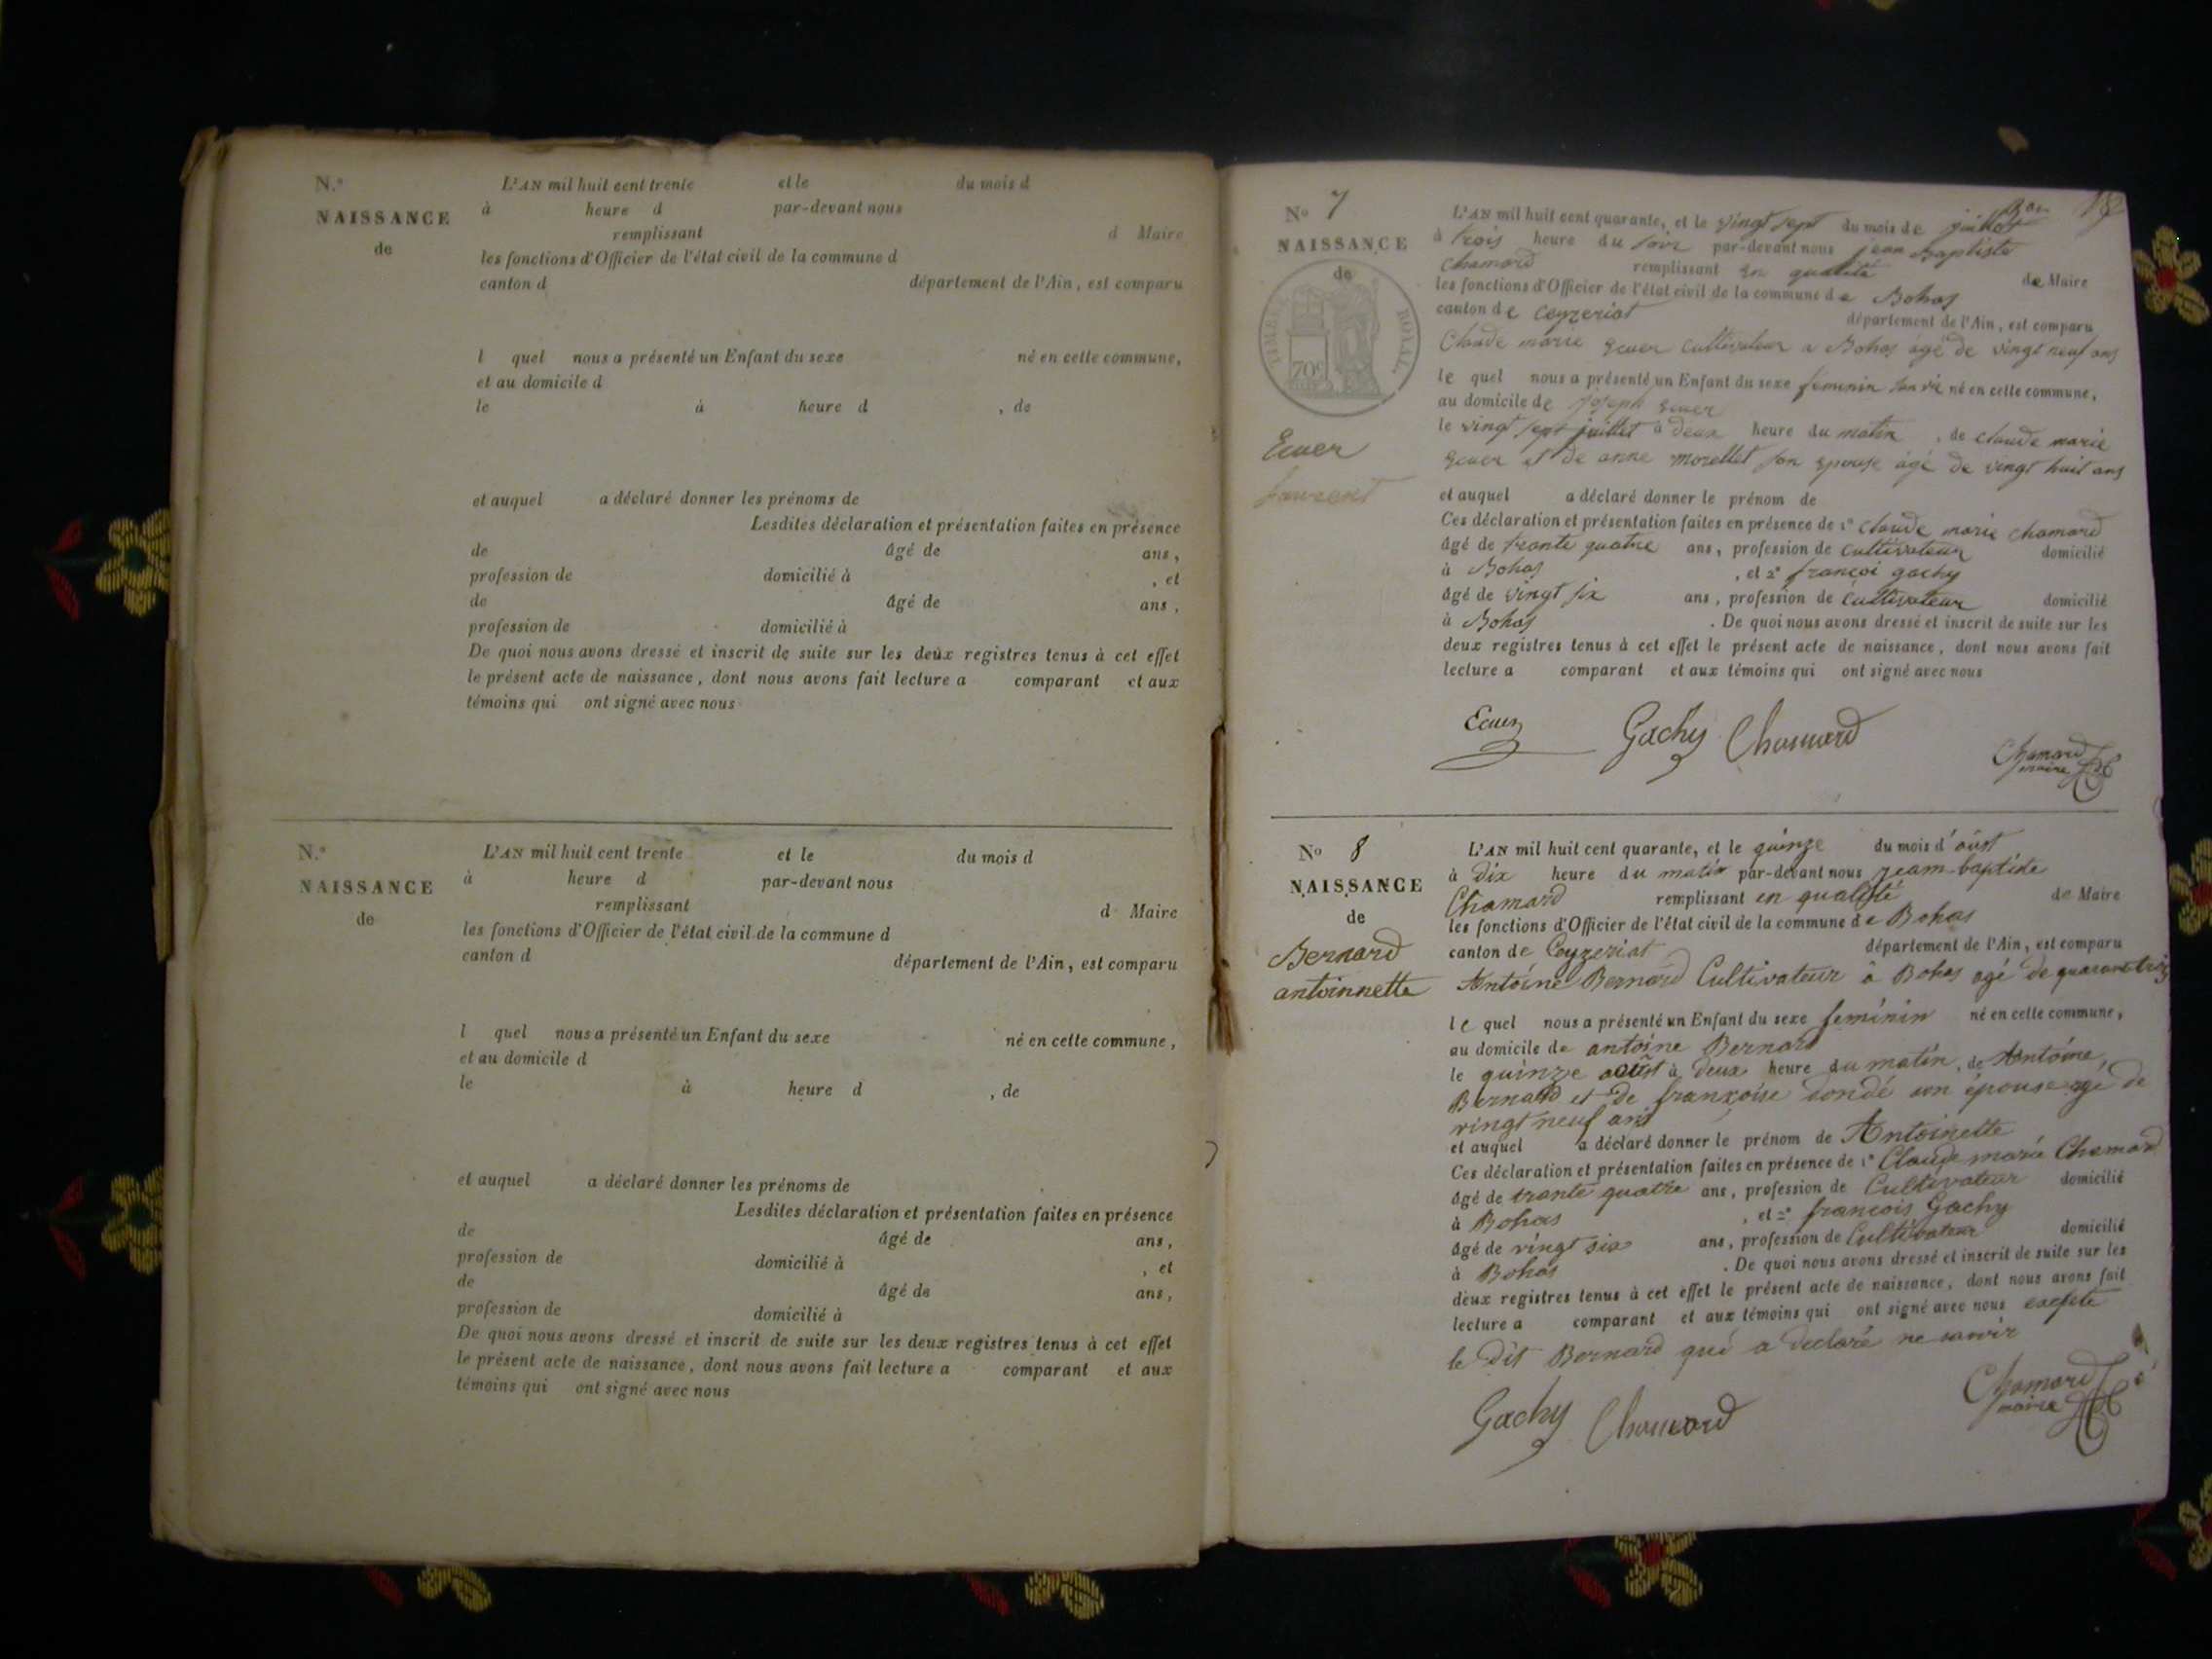 N.°
NAISSANCE
de
L'AN mil huit cent trente et le du mois d
à heure d par-devant nous
remplissant d Maire
les fonctions d'Officier de l'état civil de la commune d
canton d département de l'Ain, est comparu
l quel nous a présenté un Enfant du sexe né en cette commune,
et au domicile d
le à heure d , de
et auquel a déclaré donner les prénoms de
Lesdites déclaration et présentation faites en présence
de âgé de ans,
profession de domicilié à , et
de âgé de ans,
profession de domicilié à
De quoi nous avons dressé et inscrit de suite sur les deux registres tenus à cet effet
le présent acte de naissance, dont nous avons fait lecture a comparant et aux
témoins qui ont signé avec nous
N.°
NAISSANCE
de
L'AN mil huit cent trente et le du mois d
à heure d par-devant nous
remplissant d Maire
les fonctions d'Officier de l'état civil de la commune d
canton d département de l'Ain, est comparu
l quel nous a présenté un Enfant du sexe né en cette commune,
et au domicile d
le à heure d , de
et auquel a déclaré donner les prénoms de
Lesdites déclaration et présentation faites en présence
de âgé de ans,
profession de domicilié à , et
de âgé de ans,
profession de domicilié à
De quoi nous avons dressé et inscrit de suite sur les deux registres tenus à cet effet
le présent acte de naissance, dont nous avons fait lecture a comparant et aux
témoins qui ont signé avec nous
N° 7
NAISSANCE
de
TIMBRE ROYAL
70c
Ecuer
L'AN mil huit cent quarante, et le vingt sept du mois de juillet
à trois heure du soir par-devant nous jean Baptiste
Chamard remplissant en qualité de Maire
les fonctions d'Officier de l'état civil de la commune de Bohas
canton de Ceyzeriat département de l'Ain, est comparu
Claude marie Ecuer Cultivateur a Bohas âgé de vingt neuf ans
le quel nous a présenté un Enfant du sexe feminin né en cette commune,
au domicile de joseph Ecuer
le vingt sept juillet à deux heure du matin , de claude marie
Ecuer et de anne morellet son Epouse âgé de vingt huit ans
et auquel a déclaré donner le prénom de
Ces déclaration et présentation faites en présence de 1° claude marie chamard
âgé de trante quatre ans, profession de cultivateur domicilié
à Bohas , et 2° françoi gachy
âgé de vingt six ans, profession de Cultivateur domicilié
à Bohas . De quoi nous avons dressé et inscrit de suite sur les
deux registres tenus à cet effet le présent acte de naissance, dont nous avons fait
lecture a comparant et aux témoins qui ont signé avec nous
Ecuer Gachy Chamard
Chamard
maire
N° 8
NAISSANCE
de
Bernard
antoinnette
L'AN mil huit cent quarante, et le quinze du mois d'oûst
à dix heure du matin par-devant nous jeam-baptiste
Chamard remplissant en qualité de Maire
les fonctions d'Officier de l'état civil de la commune de Bohas
canton de Ceyzeriat département de l'Ain, est comparu
Antoine Bernard Cultivateur à Bohas agé de
le quel nous a présenté un Enfant du sexe feminin né en cette commune,
au domicile de antoine Bernard
le quinze août à deux heure du matin , de Antoine
Bernard et de françoise son épouse agé de
vingt neuf ans
et auquel a déclaré donner le prénom de Antoinette
Ces déclaration et présentation faites en présence de 1° Claude marie Chamard
âgé de trante quatre ans, profession de Cultivateur domicilié
à Bohas , et 2° francois Gachy
âgé de vingt six ans, profession de Cultivateur domicilié
à Bohas . De quoi nous avons dressé et inscrit de suite sur les
deux registres tenus à cet effet le présent acte de naissance, dont nous avons fait
lecture a comparant et aux témoins qui ont signé avec nous
le dit Bernard qui a declaré ne savoir
Gachy Chamard
Chamard
maire